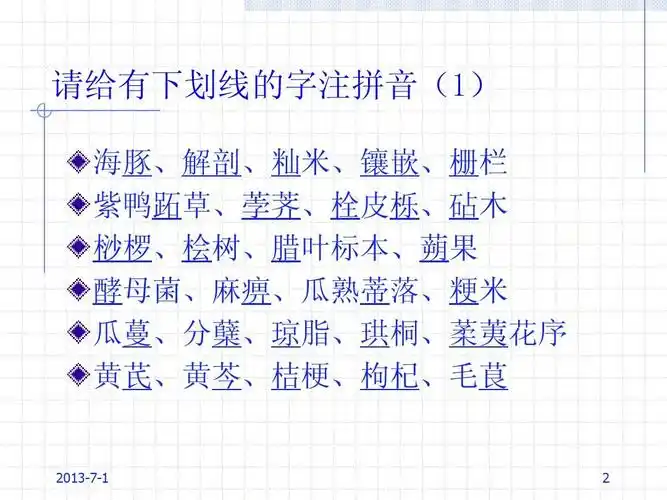 请给有下划线的字注拼音（1）
海豚、解剖、籼米、镶嵌、栅栏
紫鸭跖草、荸荠、栓皮栎、砧木
桫椤、桧树、腊叶标本、蒴果
酵母菌、麻痹、瓜熟蒂落、粳米
瓜蔓、分蘖、琼脂、珙桐、葇荑花序
黄芪、黄芩、桔梗、枸杞、毛茛
2013-7-1
2